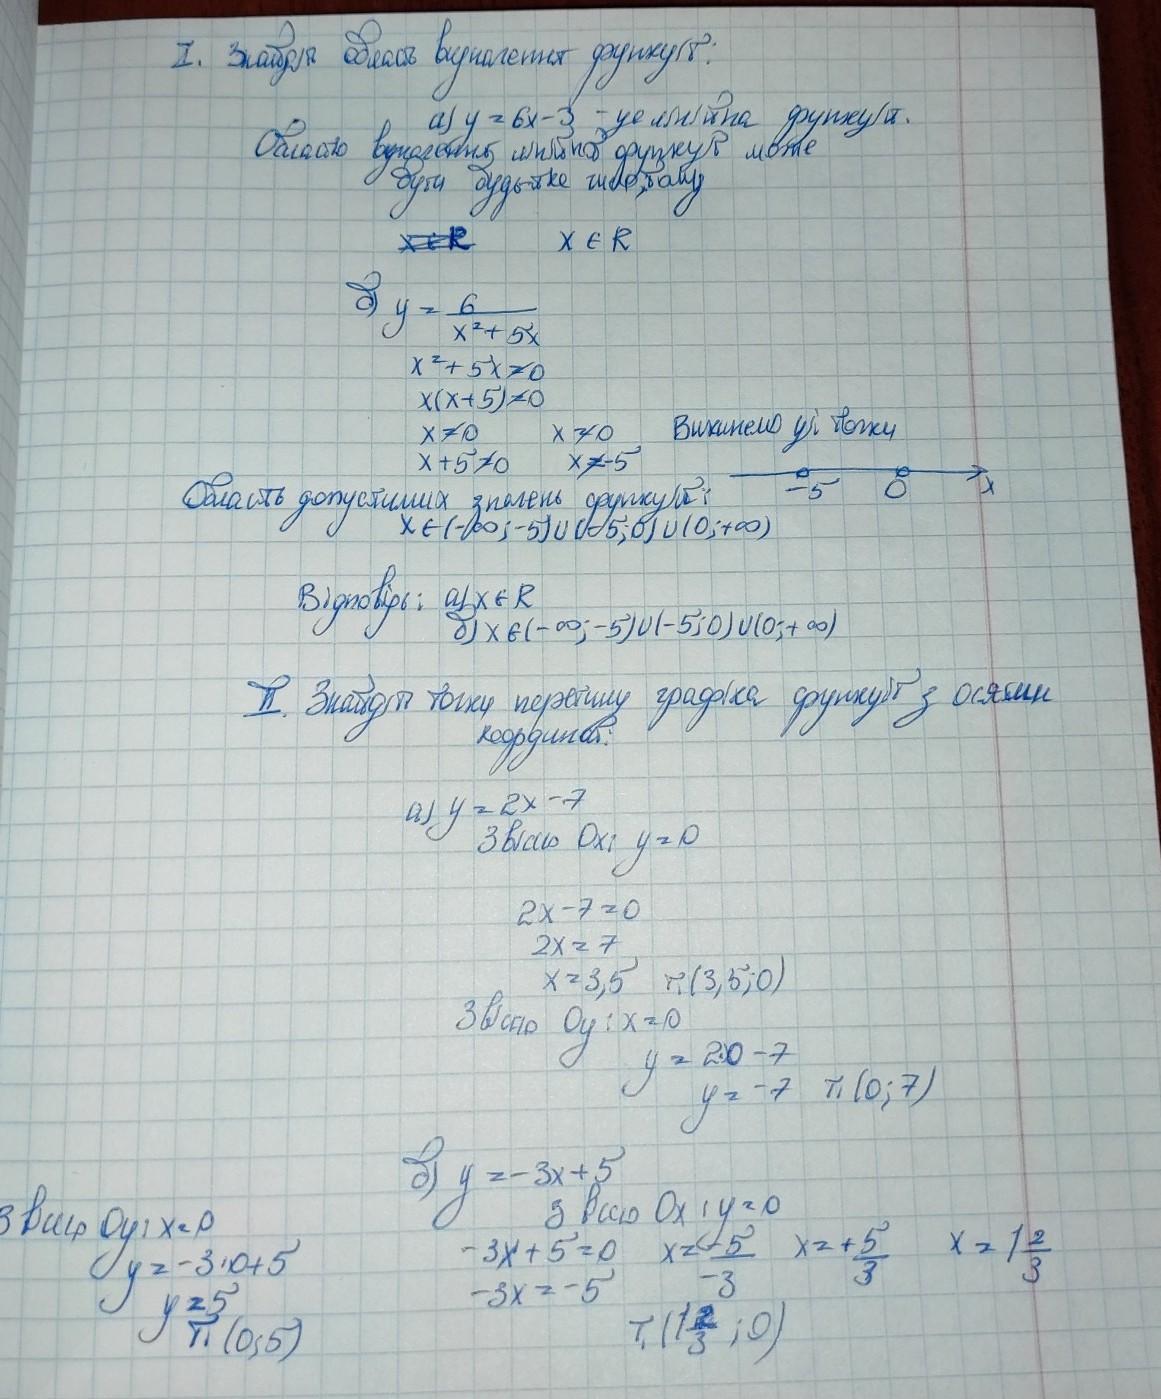 I. Знайдіть область визначення функції:
а) y = 6x - 3 - це лінійна функція.
Областю визначення лінійної функції може
бути будь-яке число, тому
x ∈ R x ∈ R
б) y = 6/(x² + 5x)
x² + 5x ≠ 0
x(x+5) ≠ 0
x ≠ 0 x ≠ 0 Викинемо ці точки
x + 5 ≠ 0 x ≠ -5
-5 0 x
Область допустимих значень функції:
x ∈ (-∞; -5) ∪ (-5; 0) ∪ (0; +∞)
Відповідь: а) x ∈ R
б) x ∈ (-∞; -5) ∪ (-5; 0) ∪ (0; +∞)
II. Знайдіть точку перетину графіка функції з осями
координат:
а) y = 2x - 7
З віссю Ox: y = 0
2x - 7 = 0
2x = 7
x = 3,5 т. (3,5; 0)
З віссю Oy: x = 0
y = 2·0 - 7
y = -7 т. (0; 7)
б) y = -3x + 5
З віссю Ox: y = 0
-3x + 5 = 0 x = -5/-3 x = +5/3 x = 1 2/3
-3x = -5
т. (1 2/3; 0)
З віссю Oy: x = 0
y = -3·0 + 5
y = 5
т. (0; 5)